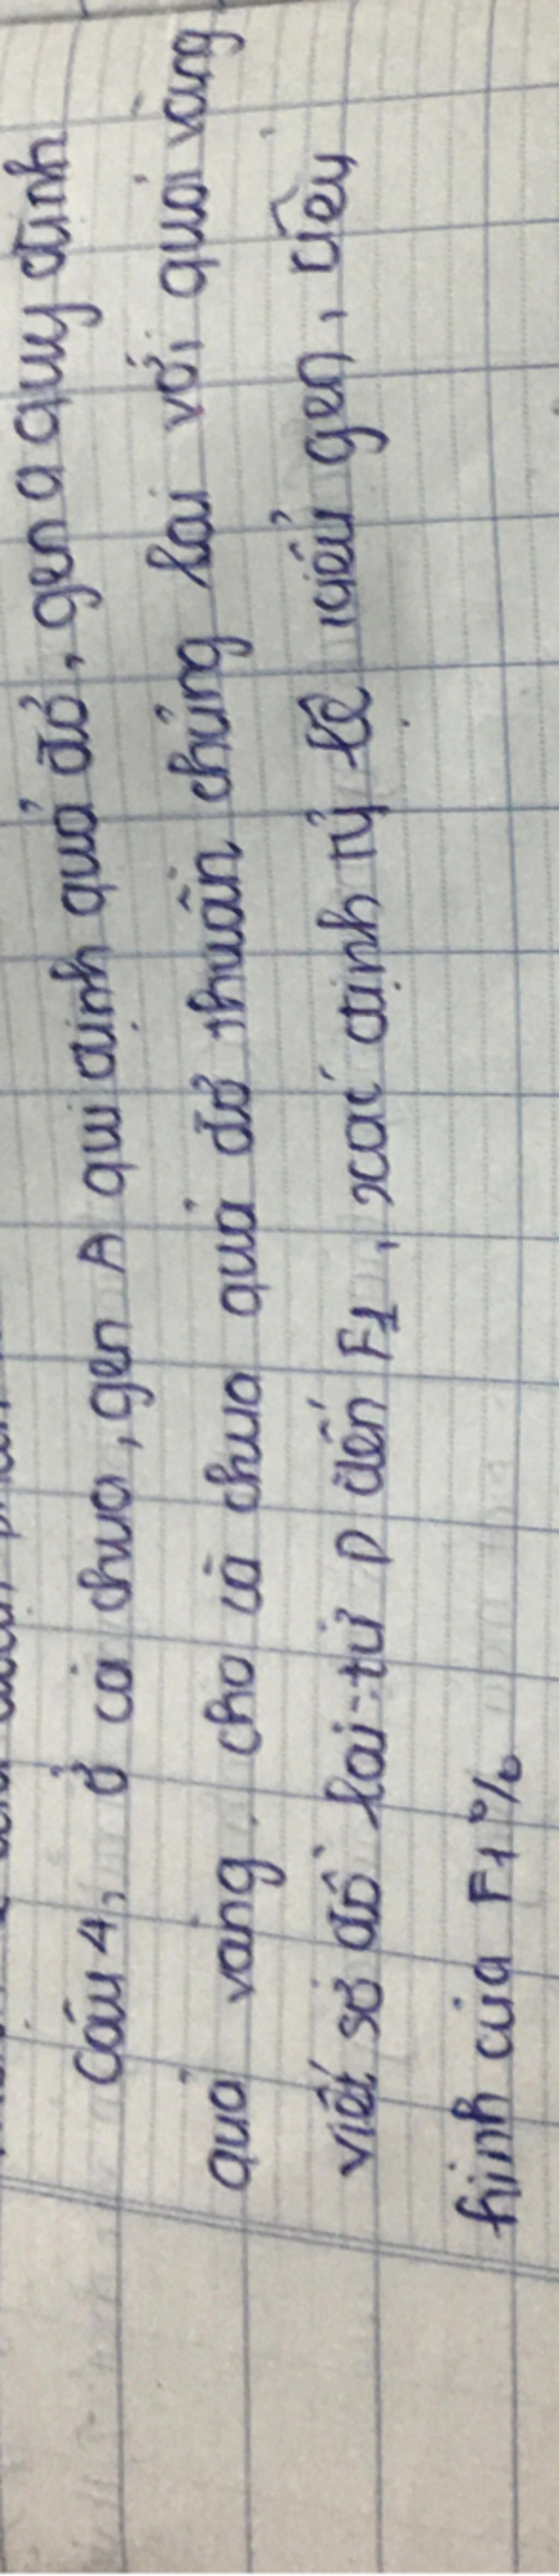 Câu 4, ở cà chua, gen A qui định quả đỏ, gen a quy định
quả vàng. cho cà chua quả đỏ thuần chủng lai với quả vàng
viết sơ đồ lai từ P đến F1, xác định tỷ lệ kiểu gen, kiểu
hình của F1%